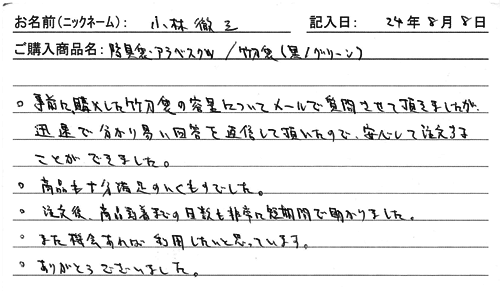 お名前(ニックネーム): 小林 徹三 記入日: 24年8月8日
ご購入商品名: 防具袋・アラベスクW / 竹刀袋(黒/グリーン)
○ 事前に購入した竹刀袋の容量についてメールで質問させて頂きましたが、
迅速で分かり易い回答を返信して頂いたので、安心して注文する
ことができました。
○ 商品も十分満足のいくものでした。
○ 注文後、商品到着までの日数も非常に短期間で助かりました。
○ また機会あれば利用したいと思っています。
○ ありがとうございました。